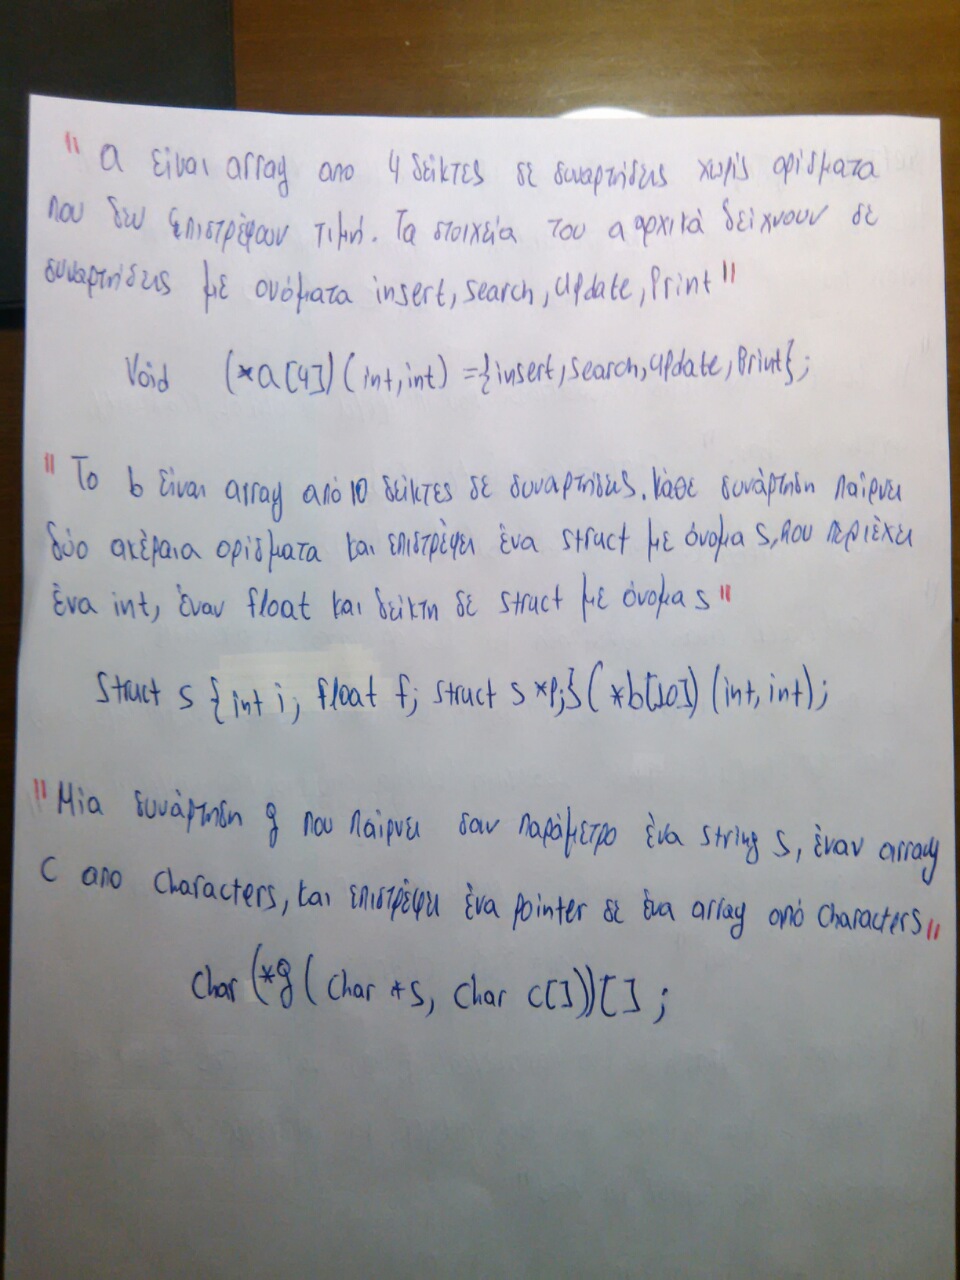 "a είναι array απο 4 δείκτες σε συναρτήσεις χωρίς ορίσματα
που δεν επιστρέφουν τιμή. Τα στοιχεία του a αρχικά δείχνουν σε
συναρτήσεις με ονόματα insert, search, update, print"
Void (*a[4])(int,int) ={insert,search,update,print};
"Το b είναι array από 10 δείκτες σε συναρτήσεις. Κάθε συνάρτηση παίρνει
δύο ακέραια ορίσματα και επιστρέφει ένα struct με όνομα s, που περιέχει
ένα int, έναν float και δείκτη σε struct με όνομα s"
Struct s {int i; float f; struct s *p;}(*b[10])(int,int);
"Μία συνάρτηση g που παίρνει σαν παράμετρο ένα string s, έναν array
c απο characters, και επιστρέφει ένα pointer σε ένα array από characters"
Char (*g(char *s, char c[]))[];